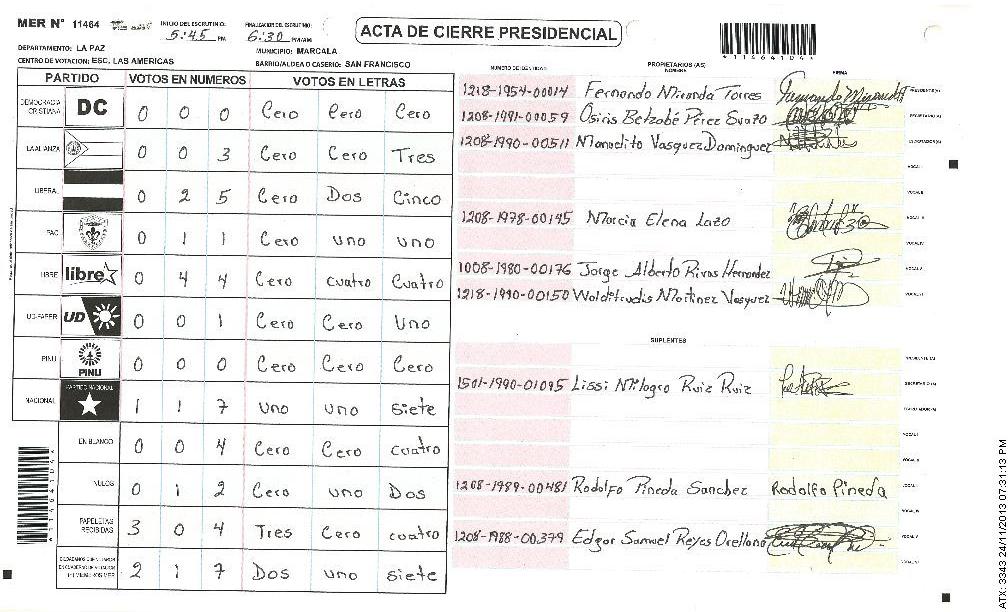 MER N° 11464
INICIO DEL ESCRUTINIO: 5:45 PM
FINALIZACION DEL ESCRUTINIO: 6:30 PM/AM
ACTA DE CIERRE PRESIDENCIAL
DEPARTAMENTO: LA PAZ
MUNICIPIO: MARCALA
CENTRO DE VOTACION: ESC. LAS AMERICAS
BARRIO/ALDEA O CASERIO: SAN FRANCISCO
*11464104*
PARTIDO VOTOS EN NUMEROS VOTOS EN LETRAS
DEMOCRACIA CRISTIANA DC 0 0 0 Cero Cero Cero
LA ALIANZA 0 0 3 Cero Cero Tres
LIBERAL 0 2 5 Cero Dos Cinco
PAC 0 1 1 Cero uno uno
LIBRE libre 0 4 4 Cero cuatro Cuatro
UD-FAPER UD 0 0 1 Cero Cero Uno
PINU PINU 0 0 0 Cero Cero Cero
NACIONAL PARTIDO NACIONAL 1 1 7 uno uno siete
EN BLANCO 0 0 4 Cero Cero cuatro
NULOS 0 1 2 Cero uno Dos
PAPELETAS RECIBIDAS 3 0 4 Tres Cero cuatro
2 1 7 Dos uno siete
NUMERO DE IDENTIDAD PROPIETARIOS (AS) NOMBRE FIRMA
1218-1954-00014 Fernando Miranda Torres PRESIDENTE(A)
1208-1991-00059 Osiris Betzabé Pérez Suazo SECRETARIO(A)
1208-1990-00511 Manuelito Vasquez Dominguez ESCRUTADOR(A)
VOCAL I
VOCAL II
1208-1978-00145 Marcia Elena Lazo VOCAL III
VOCAL IV
1008-1980-00176 Jorge Alberto Rivas Hernandez VOCAL V
1218-1990-00150 Walditrudis Martinez Vasquez VOCAL VI
SUPLENTES
PRESIDENTE(A)
1501-1990-01095 Lissi Milagro Ruiz Ruiz SECRETARIO(A)
ESCRUTADOR(A)
VOCAL I
VOCAL II
1208-1989-00481 Rodolfo Pineda Sanchez Rodolfo Pineda
VOCAL IV
1208-1988-00379 Edgar Samuel Reyes Orellana VOCAL V
VOCAL VI
*11464104*
ATX: 3343 24/11/2013 07:31:13 PM